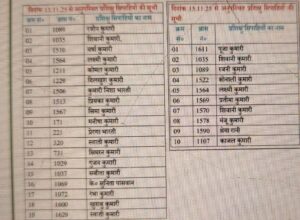 दिनांक 13.11.25 से अनुपस्थित प्रशिक्षु सिपाहियों की सूची
क्रम सं० क्रम सं० प्रशिक्षु सिपाहियों का नाम
01 1089 रवीना कुमारी
02 1035 शिवानी कुमारी
03 1570 वर्षा कुमारी
04 1564 लक्ष्मी कुमारी
05 1211 कोमल कुमारी
06 1229 दिलखुश कुमारी
07 1506 कुमारी निशा भारती
08 1513 प्रियंका कुमारी
09 1567 सिमा कुमारी
10 171 मनीषा कुमारी
11 221 प्रेरणा भारती
12 550 स्वाती कुमारी
13 731 सिमरन कुमारी
14 1029 गुंजन कुमारी
15 1037 सबीता कुमारी
16 1069 कु० सुनिता पासवान
17 1072 रेभा कुमारी
18 1600 खुशबू कुमारी
19 1620 स्वाती कुमारी
दिनांक 15.11.25 से अनुपस्थित प्रशिक्षु सिपाहियों की सूची
क्रम सं० क्रम सं० प्रशिक्षु सिपाहियों का नाम
01 1611 पूजा कुमारी
02 1035 शिवानी कुमारी
03 1089 रजनी कुमारी
04 1522 सोनाली कुमारी
05 1564 लक्ष्मी कुमारी
06 1569 प्रतीमा कुमारी
07 1570 शिवानी कुमारी
08 1578 मंजू कुमारी
09 1590 श्रेया रानी
10 1107 काजल कुमारी